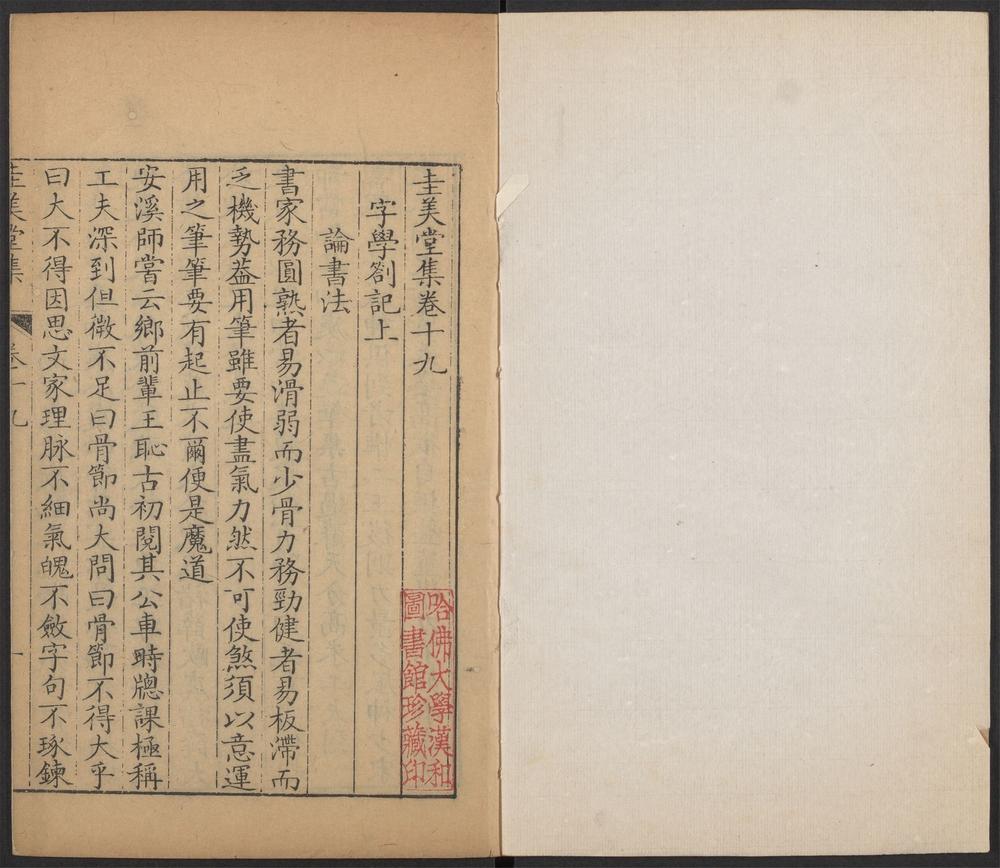 圭美堂集卷十九
字學劄記上
論書法
書家務圓熟者易滑弱而少骨力務勁健者易板滯而
乏機勢葢用筆雖要使盡氣力然不可使煞須以意運
用之筆筆要有起止不爾便是魔道
安溪師嘗云鄉前輩王恥古初閱其公車時牕課極稱
工夫深到但微不足曰骨節尚大問曰骨節不得大乎
曰大不得因思文家理脉不細氣魄不斂字句不琢鍊
圭美堂集
卷十九
一
哈佛大學漢和
圖書館珍藏印